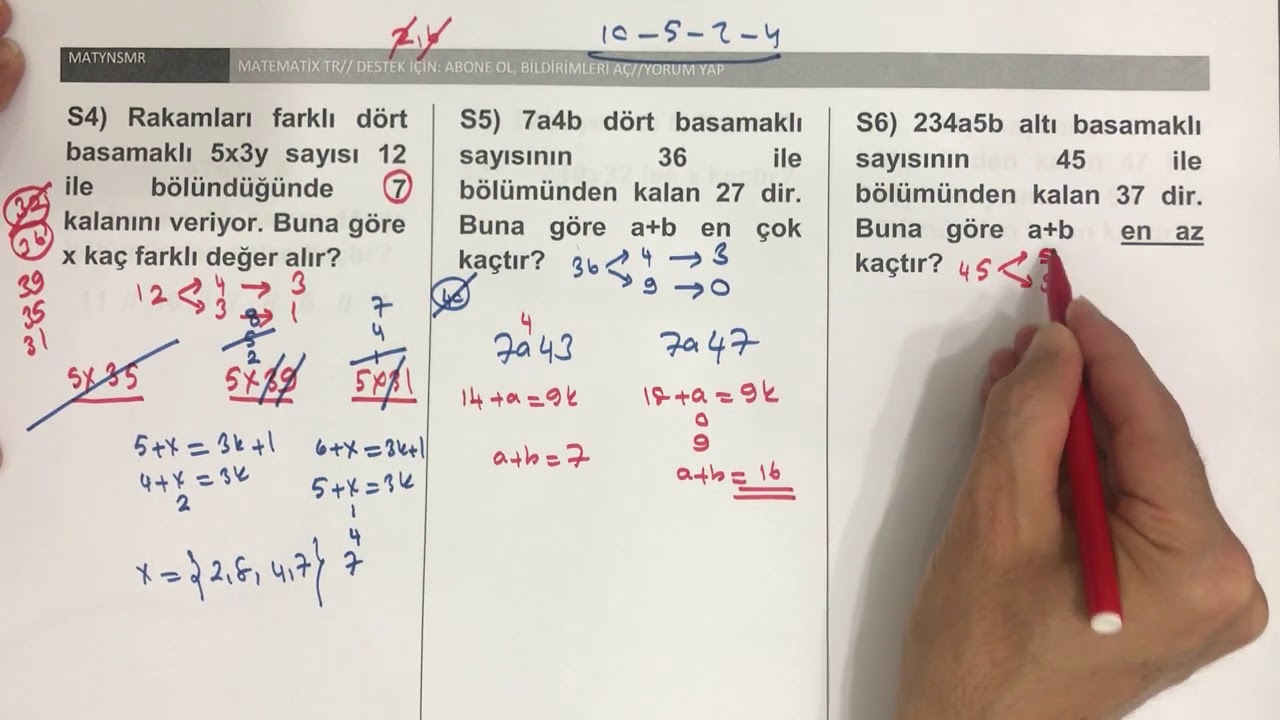 10-5-2-4
MATYNSMR
MATEMATİX TR// DESTEK İÇİN: ABONE OL, BİLDİRİMLERİ AÇ//YORUM YAP
S4) Rakamları farklı dört
basamaklı 5x3y sayısı 12
ile bölündüğünde 7
kalanını veriyor. Buna göre
x kaç farklı değer alır?
36
39
35
31
12 < 4 → 3
3 → 1
8
5
2
7
4
1
5x35
5x39
5x31
5+x=3k+1
4+x=3k
2
6+x=3k+1
5+x=3k
1
4
7
x={2,8,4,7}
S5) 7a4b dört basamaklı
sayısının 36 ile
bölümünden kalan 27 dir.
Buna göre a+b en çok
kaçtır?
36 < 4 → 3
9 → 0
4
7a43
14+a=9k
a+b=7
7a47
18+a=9k
0
9
a+b=16
S6) 234a5b altı basamaklı
sayısının 45 ile
bölümünden kalan 37 dir.
Buna göre a+b en az
kaçtır?
45 <